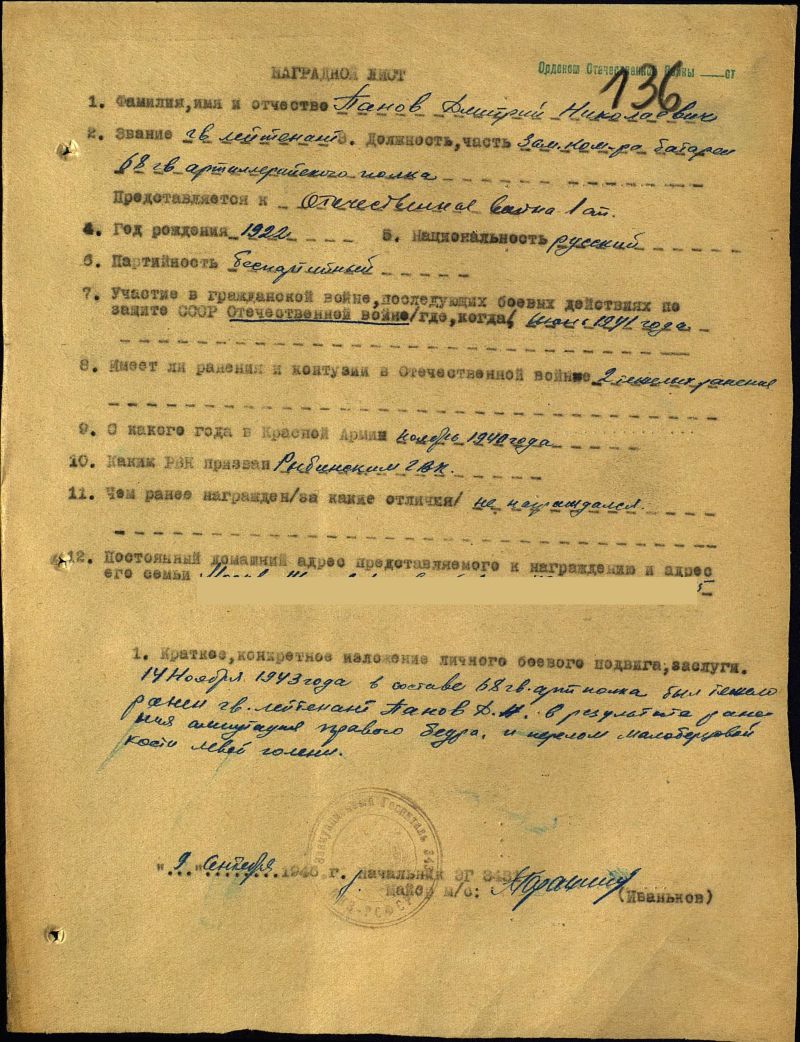 НАГРАДНОЙ ЛИСТ
Орденом Отечественной Войны ст
136
1. Фамилия, имя и отчество Панов Дмитрий Николаевич
2. Звание гв лейтенант 3. Должность, часть Зам. ком-ра батареи
68 гв артиллерийского полка
Представляется к Отечественная война 1 ст.
4. Год рождения 1922 5. Национальность русский
6. Партийность беспартийный
7. Участие в гражданской войне, последующих боевых действиях по
защите СССР Отечественной войне /где, когда/ 1941 года
8. Имеет ли ранения и контузии в Отечественной войне 2 тяжелых ранения
9. С какого года в Красной Армии ноябрь 1940 года
10. Каким РВК призван Рыбинским ГВК.
11. Чем ранее награжден /за какие отличия/ не награждался.
12. Постоянный домашний адрес представляемого к награждению и адрес
его семьи
1. Краткое, конкретное изложение личного боевого подвига, заслуги.
14 Ноября 1943 года в составе 68 гв. арт полка был тяжело
ранен гв. лейтенант Панов Д.Н. в результате ране-
ния ампутация правого бедра. и перелом малоберцовой
кости левой голени.
Эвакуационный Госпиталь
"9" Сентября 1946 г. Начальник ЭГ
Майор м/с:
(Иваньков)